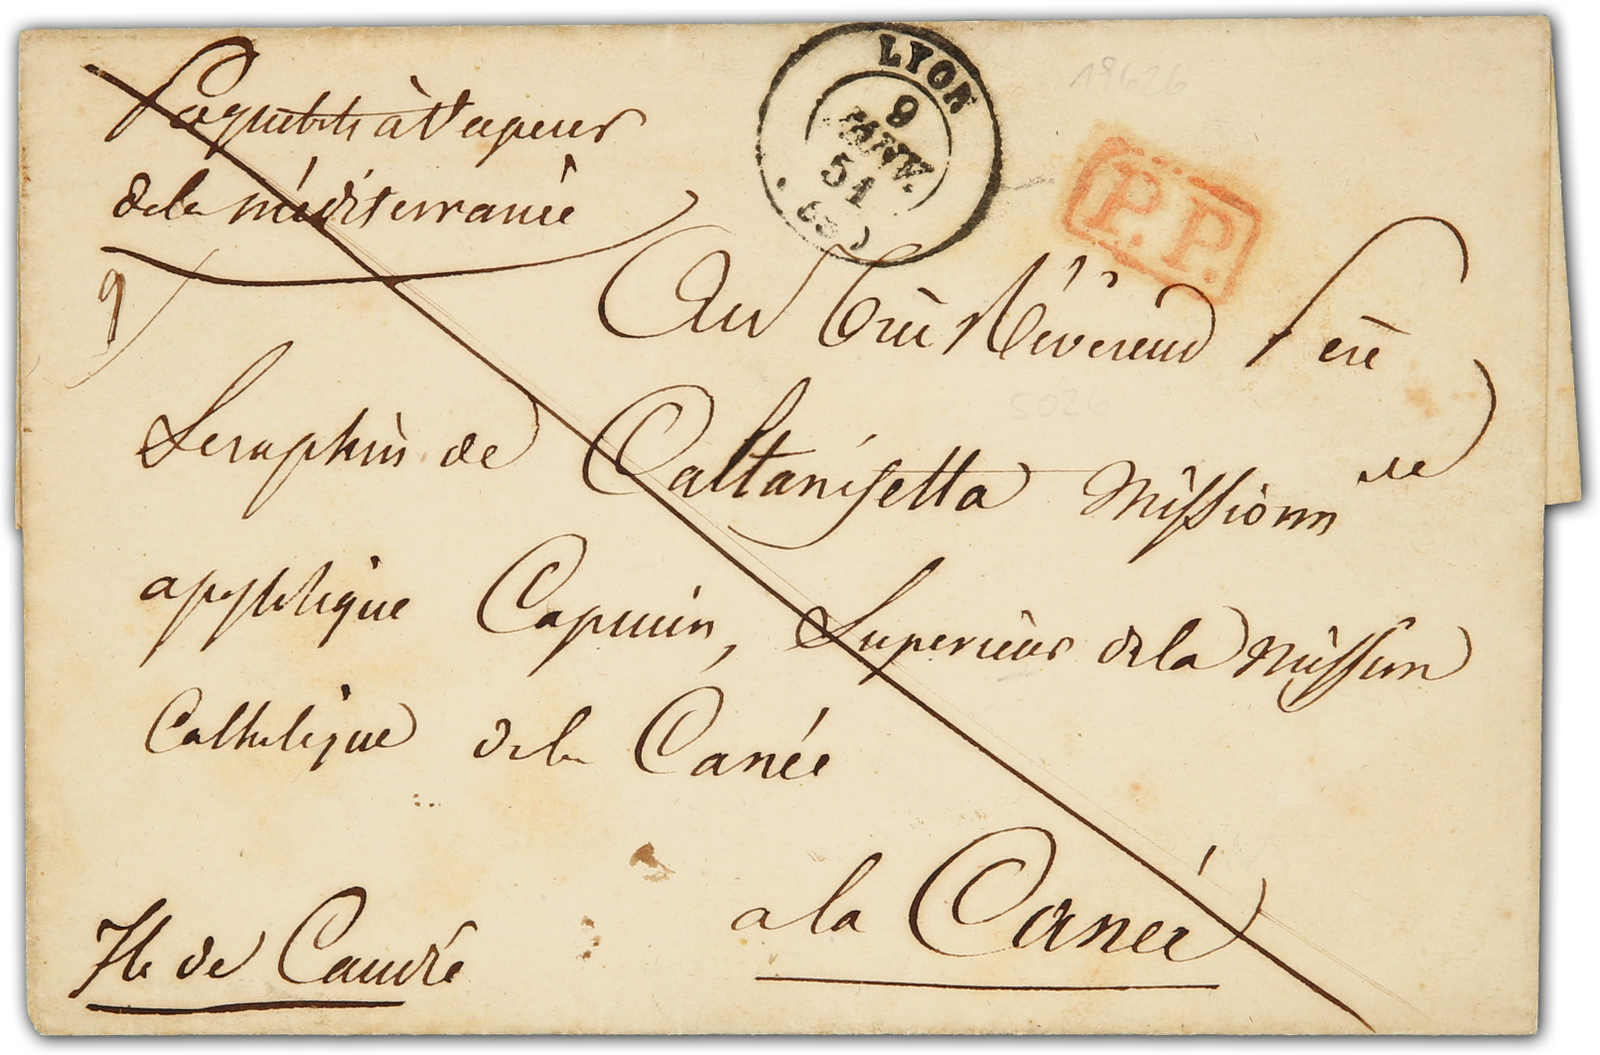 Paquebots à Vapeur
de la méditerranée
LYON
9
JANV.
51
(68)
P.P.
18626
9
Au Très Révérend Père
5026
Seraphin de Caltanisetta Missionn re
apostolique Capucin, Superieur de la Mission
Catholique de la Canée
a la Canée
Ile de Candie